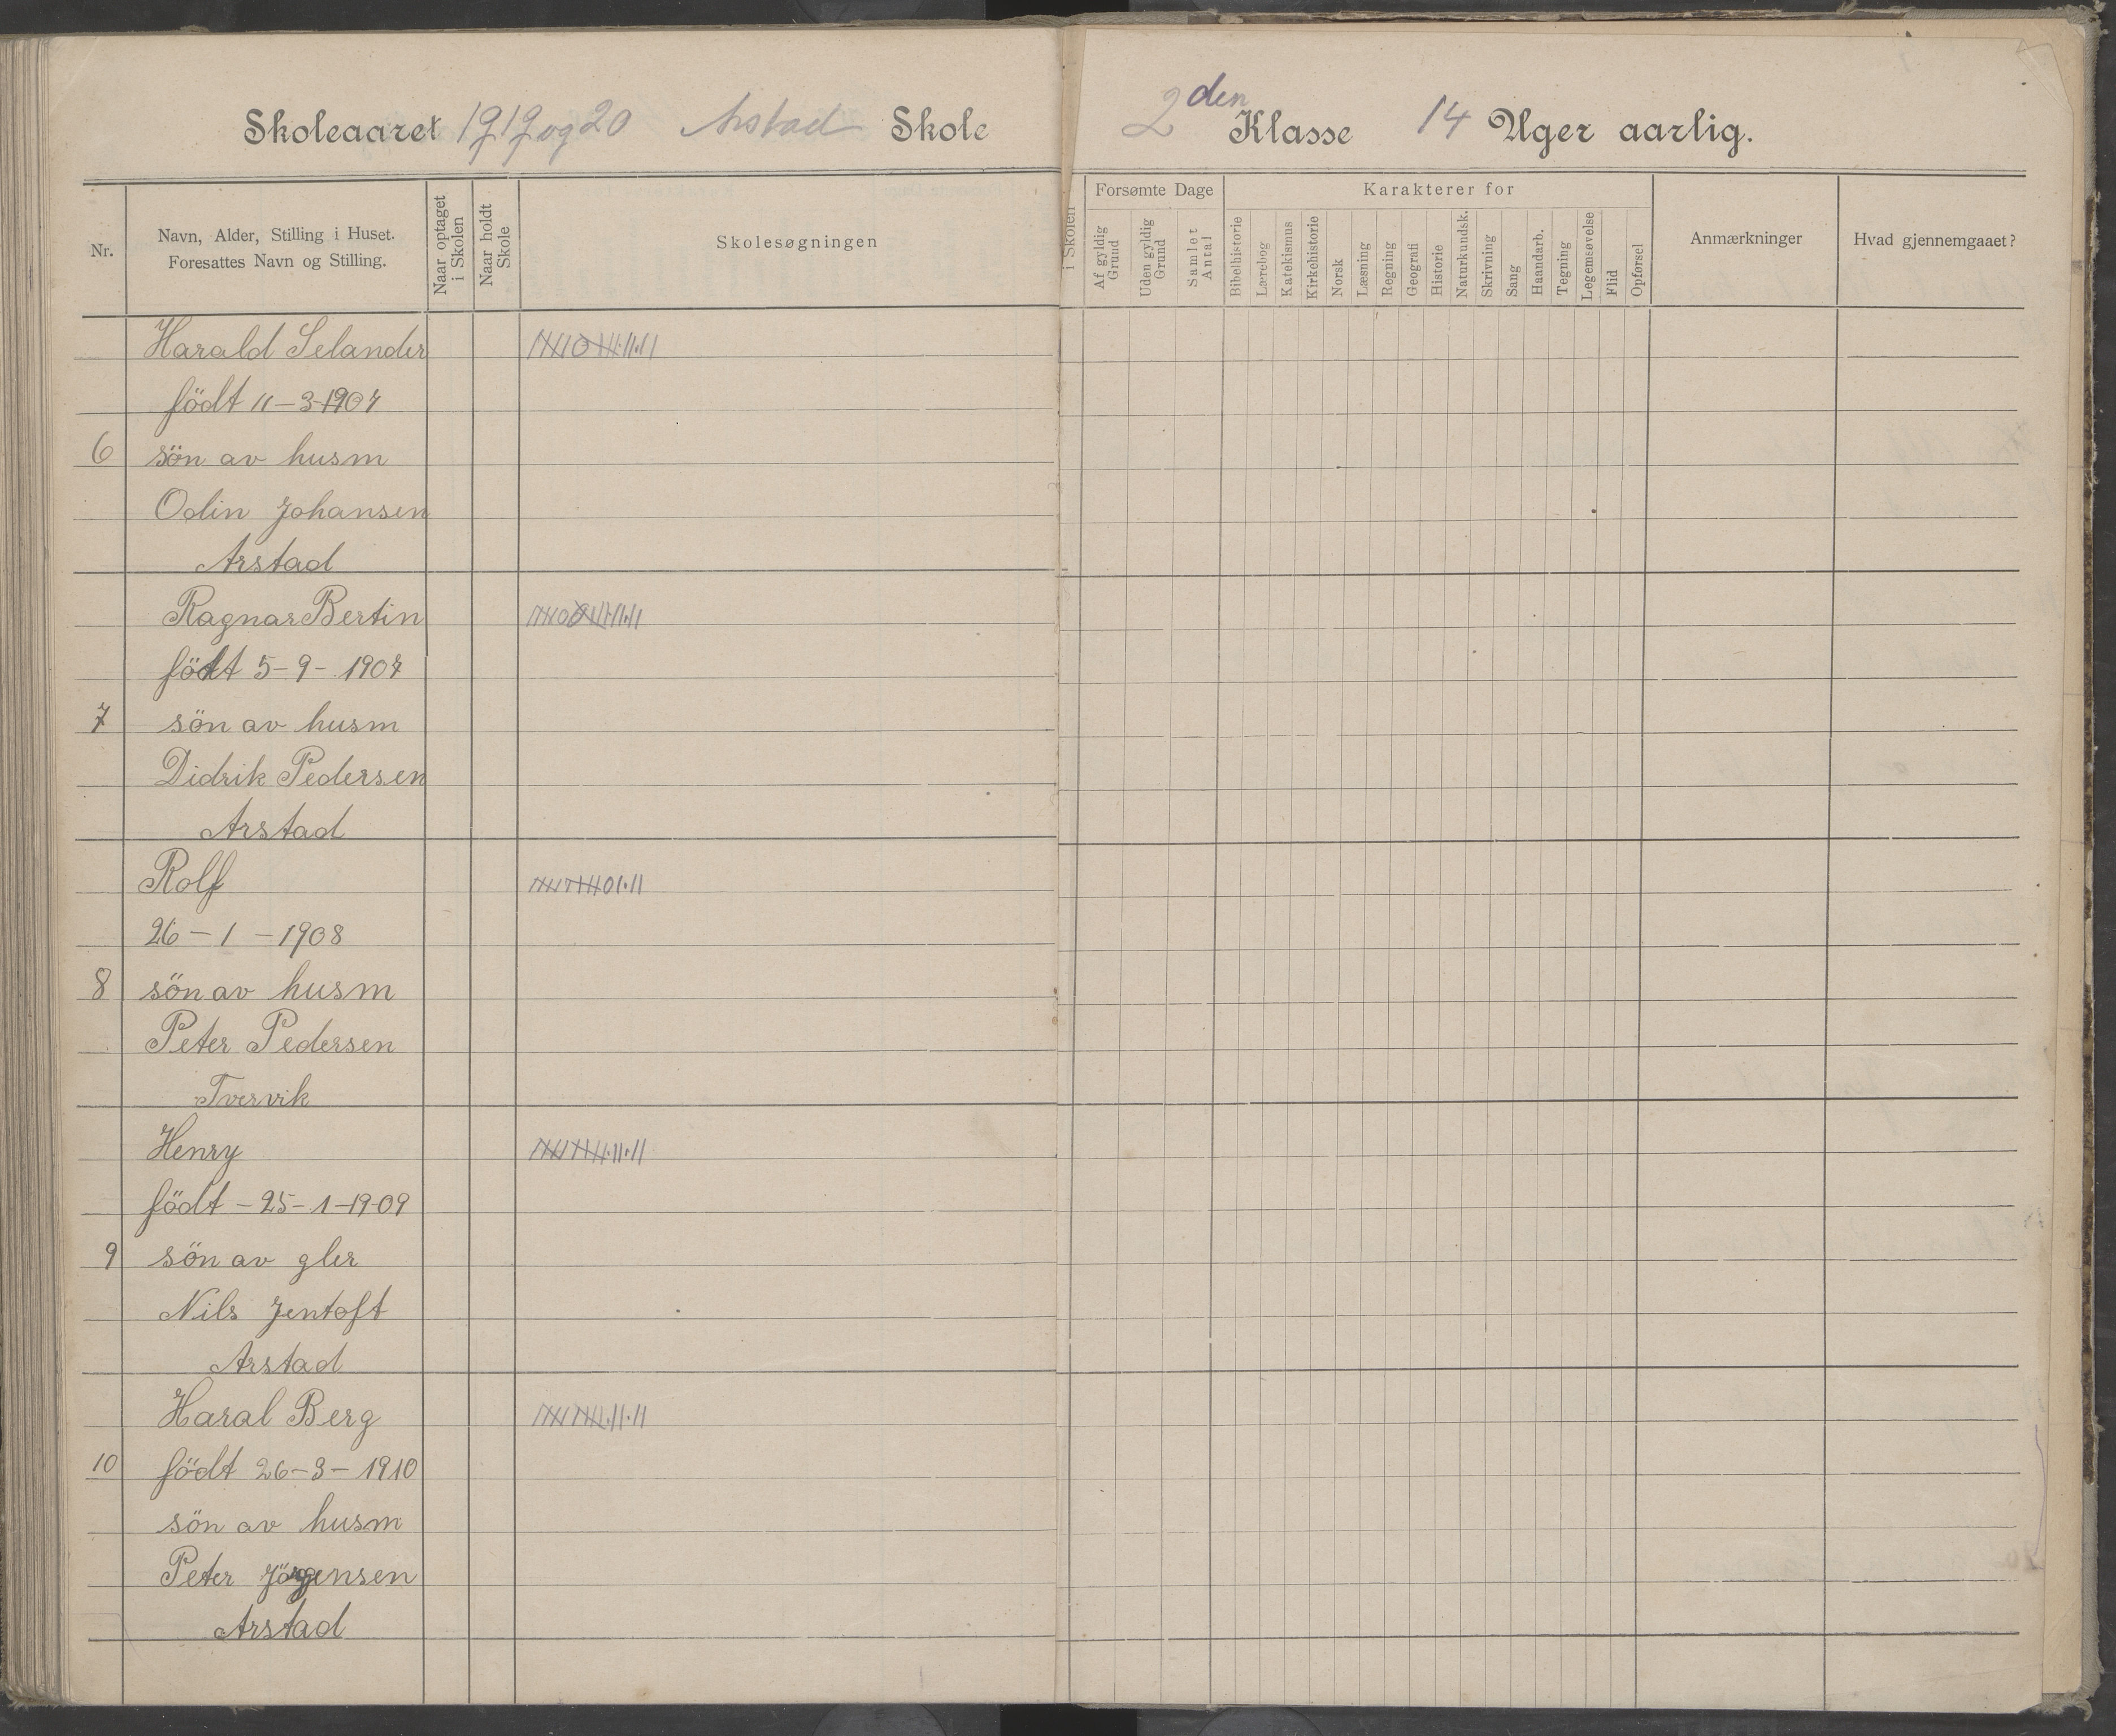 Skoleaaret 1919 og 20 Arstad Skole
2den Klasse 14 Uger aarlig.
Nr.
Navn, Alder, Stilling i Huset.
Foresattes Navn og Stilling.
Naar optaget
i Skolen
Naar holdt
Skole
Skolesøgningen
i Skolen
Forsømte Dage
Af gyldig
Grund
Uden gyldig
Grund
Samlet
Antal
Karakterer for
Bibelhistorie
Lærebog
Katekismus
Kirkehistorie
Norsk
Læsning
Regning
Geografi
Historie
Naturkundsk.
Skrivning
Sang
Haandarb.
Tegning
Legemsøvelse
Flid
Opførsel
Anmærkninger
Hvad gjennemgaaet?
Harald Selander
födt 11-3-1907
6 sön av husm
Odin Johansen
Arstad
Ragnar Bertin
födt 5-9-1907
7 sön av husm
Didrik Pedersen
Arstad
Rolf
26-1-1908
8 sön av husm
Peter Pedersen
Tvervik
Henry
födt-25-1-1909
9 sön av gler
Nils Jentoft
Arstad
Haral Berg
10 födt 26-3-1910
sön av husm
Peter Jörgensen
Arstad